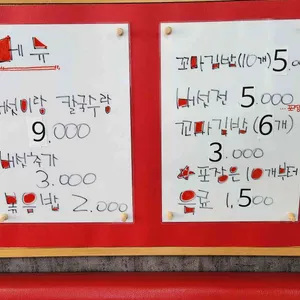 메뉴
버섯이랑 칼국수랑
9.000
버섯추가
3.000
볶음밥 2.000
꼬마김밥(10개) 5.
버섯전 5.000
꼬마김밥(6개)
3.000
포장은 10개부터
음료 1,500